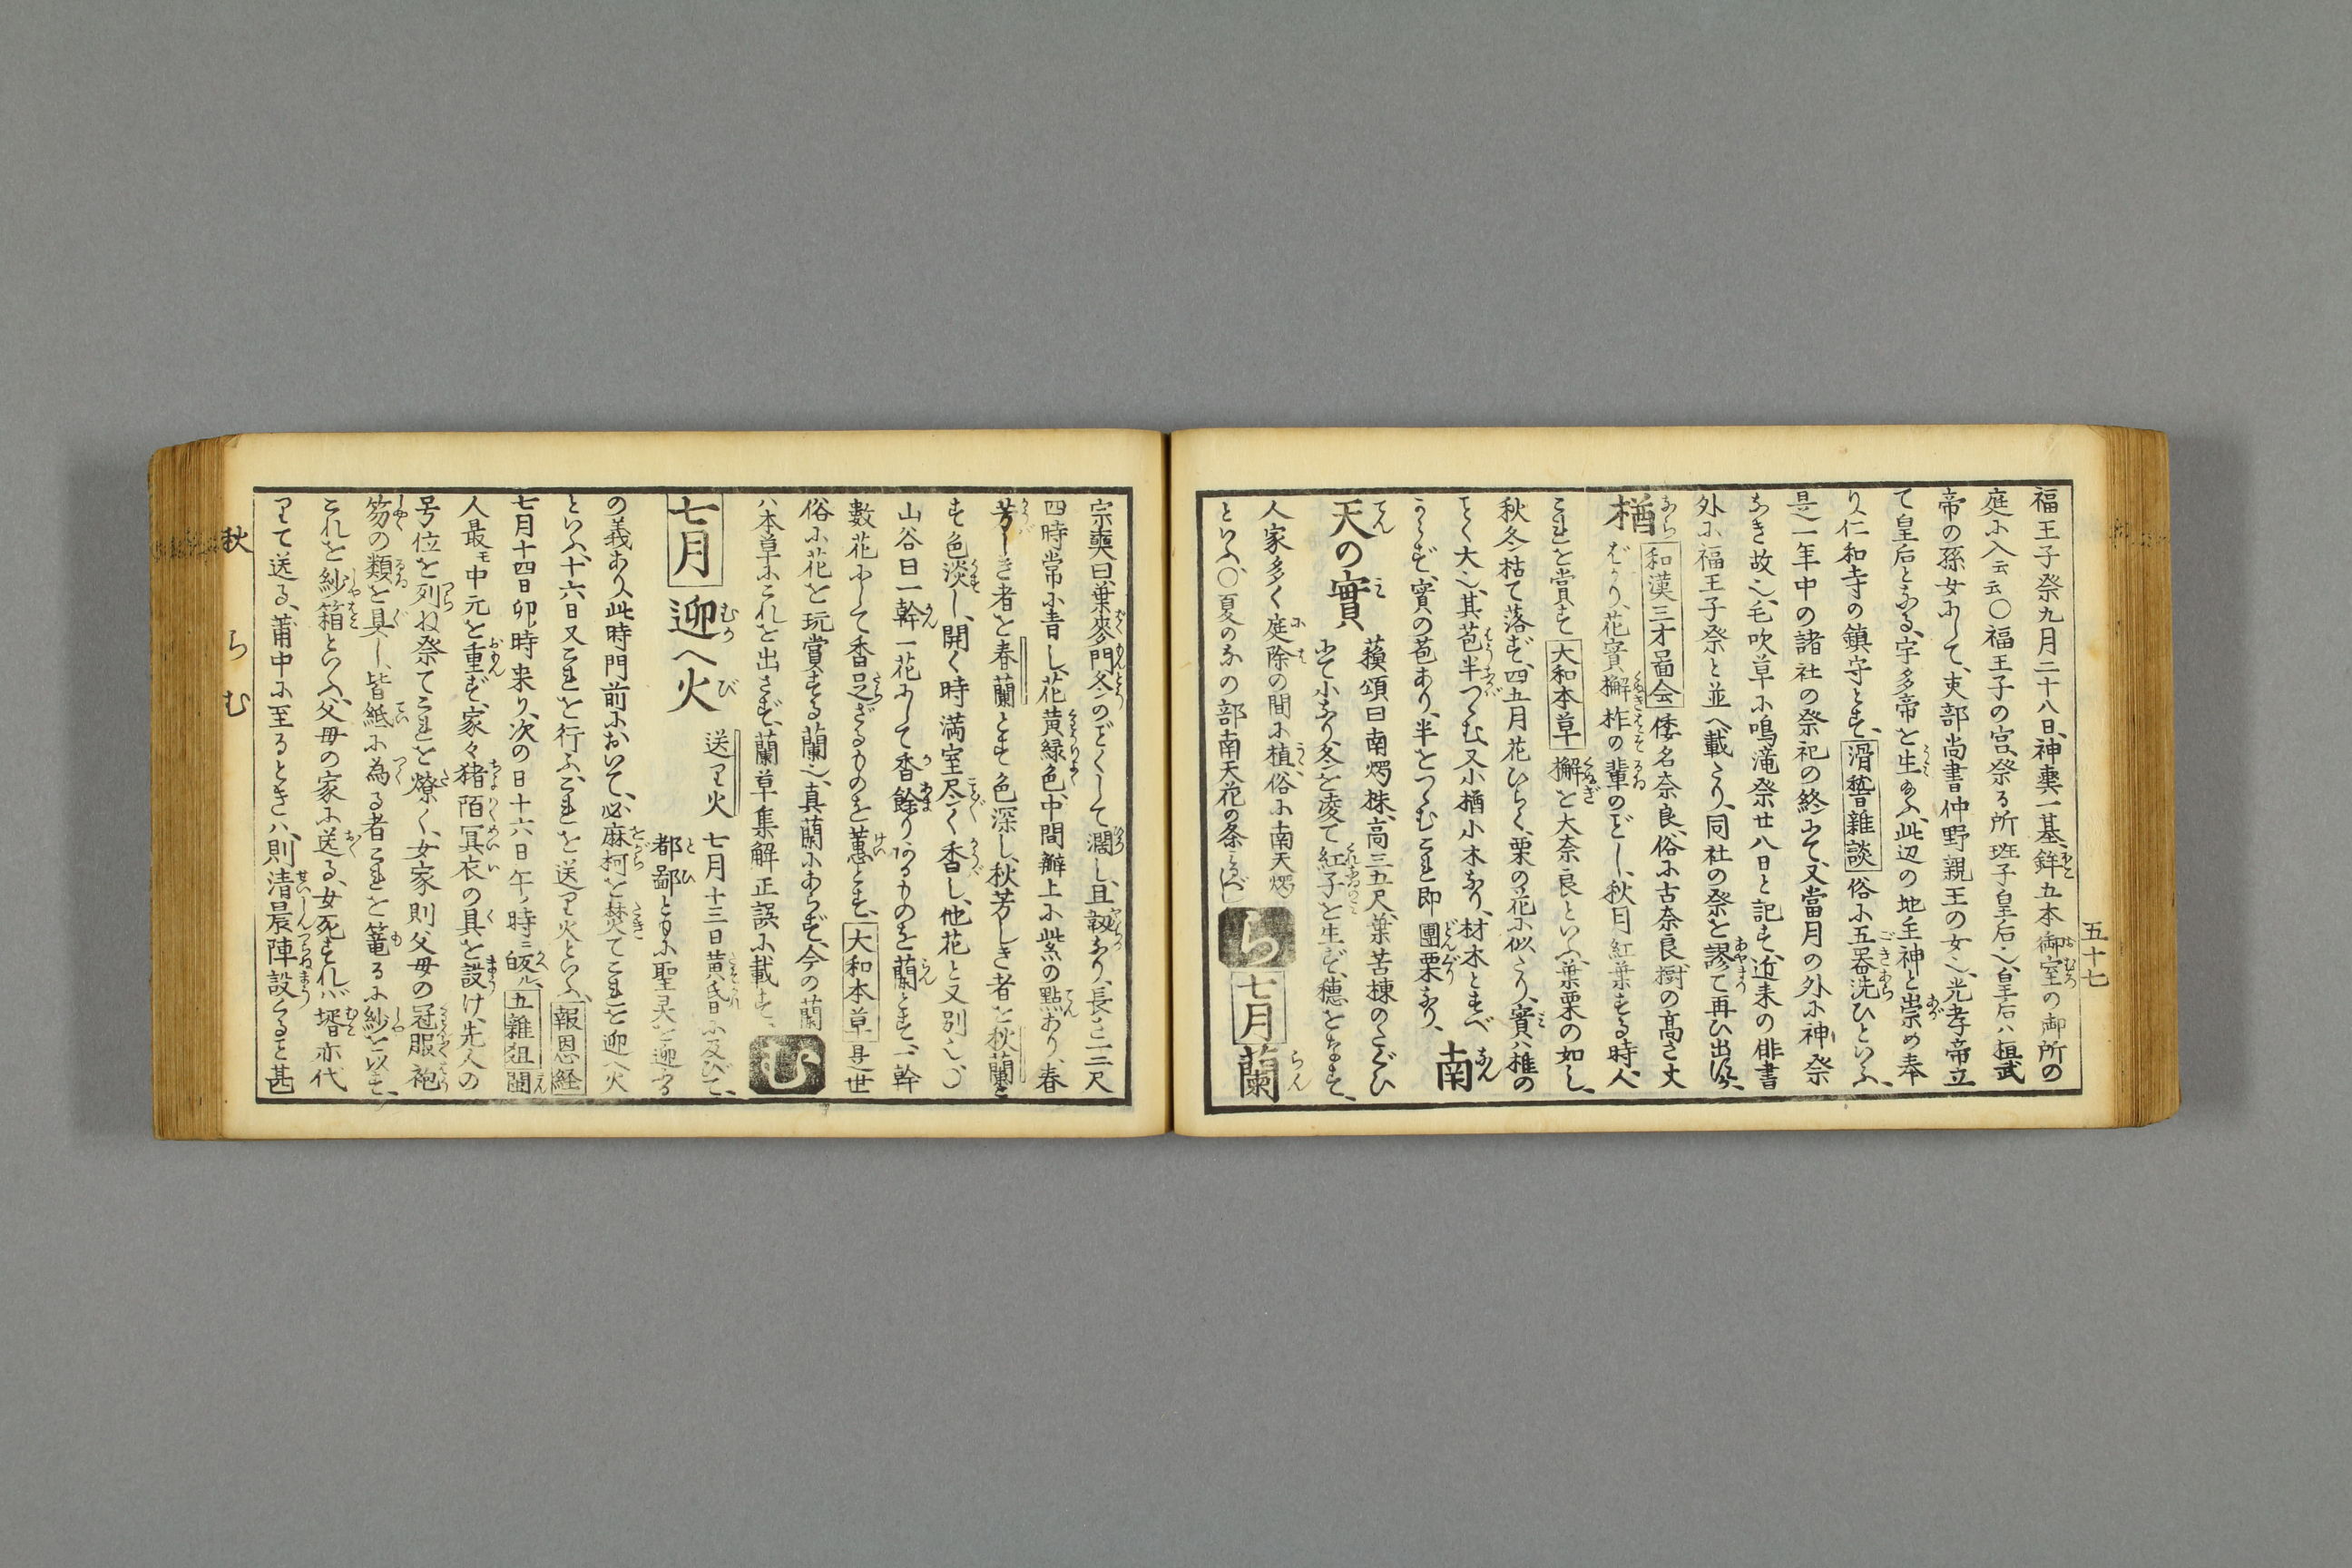 五十七
福王子祭九月二十八日、神輿一基、鉾五本御室の御所の
庭に入云云〇福王子の宮、祭る所班子皇后也、皇后ハ桓武
帝の孫女にして、吏部尚書仲野親王の女也、光孝帝立
て皇后となる、宇多帝を生給ふ、此辺の地主神と崇め奉
り、仁和寺の鎮守とす、滑稽雑談俗に五器洗ひといふ、
是一年中の諸社の祭祀の終にて、又當月の外に神祭
なき故也、毛吹草に鳴滝祭廿八日と記す、近来の俳書
外に福王子祭と並べ載たり、同社の祭を謬て再ひ出
楢 和漢三才啚会 倭名奈良、俗に古奈良、樹の高さ丈
ばかり、花實檞柞の輩のごとし、秋月紅葉する時、人
これを賞す 大和本草 檞を大奈良といふ、葉栗の如し、
秋冬枯て落ず、四五月花ひらく、栗の花に似たり、實ハ椎の
ごとく大也、其苞半つゝむ、又小楢小木なり、材木とすべ
からず、實の苞あり、半をつゝむこれ即團栗なり、 南
天の實 蘓頌曰南燭株、高三五尺、葉苦楝のたぐひ
にて小なり、冬を凌て紅子を生ず、穂をなす、
人家多く庭除の間に植、俗に南天燭
といふ、〇夏のなの部南天花の条 ら 七月 蘭
宗奭曰葉麥門冬のごとくして濶し、且韌なり、長さ一二尺
四時常に青し、花黄緑色、中間瓣上に紫の點あり、春
芳しき者を春蘭とす色深し、秋芳しき者を秋蘭と
す色淡し、開く時満室尽く香し、他花と又別也、〇
山谷曰一幹一花にして香餘りあるものを蘭とす、一幹
數花にして香足ざるものを蕙とす、大和本草是世
俗に花を玩賞する蘭也、真蘭にあらず、今の蘭
ハ本草にこれを出さず、蘭草集解正誤に載す、 む
七月 迎へ火 送り火 七月十三日黄昏に及びて、
都鄙ともに聖灵を迎る
の義あり、此時門前において、必麻柯を焚てこれを迎へ火
といふ、十六日又これを行ふ、これを送り火といふ、報恩経
七月十四日卯ノ時来り、次の日十六日午ノ時ニ皈ル、五雜狙 閩
人最モ中元を重ず、家々猪陌冥衣の具を設け、先人の
号位を列ね祭てこれを燎く、女家則父母の冠服袍
笏の類を具し、皆紙に為る者これを篭るに紗を以す、
これを紗箱といふ、父母の家に送る、女死すれバ壻亦代
りて送る、莆中に至るときハ、則清晨陣設つると甚
秋 らむ